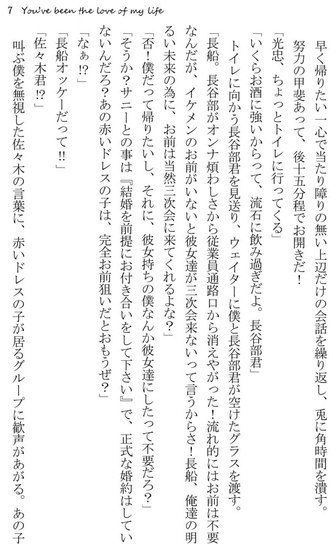 7 You've been the love of my life
早く帰りたい一心で当たり障りの無い上辺だけの会話を繰り返し、兎に角時間を潰す。
努力の甲斐あって、後十五分程でお開きだ!
「光忠、ちょっとトイレに行ってくる」
「いくらお酒に強いからって、流石に飲み過ぎだよ。長谷部君」
トイレに向かう長谷部君を見送り、ウェイターに僕と長谷部君が空けたグラスを渡す。
「長船。長谷部がオンナ煩わしさから従業員通路口から消えやがった!流れ的にはお前は不要
なんだが、イケメンのお前がいないと彼女達が三次会来ないって言うからさ!長船、俺達の明
るい未来の為に、お前は当然三次会に来てくれるよな?」
「否!僕だって帰りたいし、それに、彼女持ちの僕なんか彼女達にしたって不要だろ?」
「そうか?サニーとの事は『結婚を前提にお付き合いをして下さい』で、正式な婚約はしてい
ないんだろ?あの赤いドレスの子は、完全お前狙いだとおもうぜ?
「なぁ!?」
「長船オッケーだって!!」
「佐々木君!?」
叫ぶ僕を無視した佐々木の言葉に、赤いドレスの子が居るグループに歓声があがる。あの子